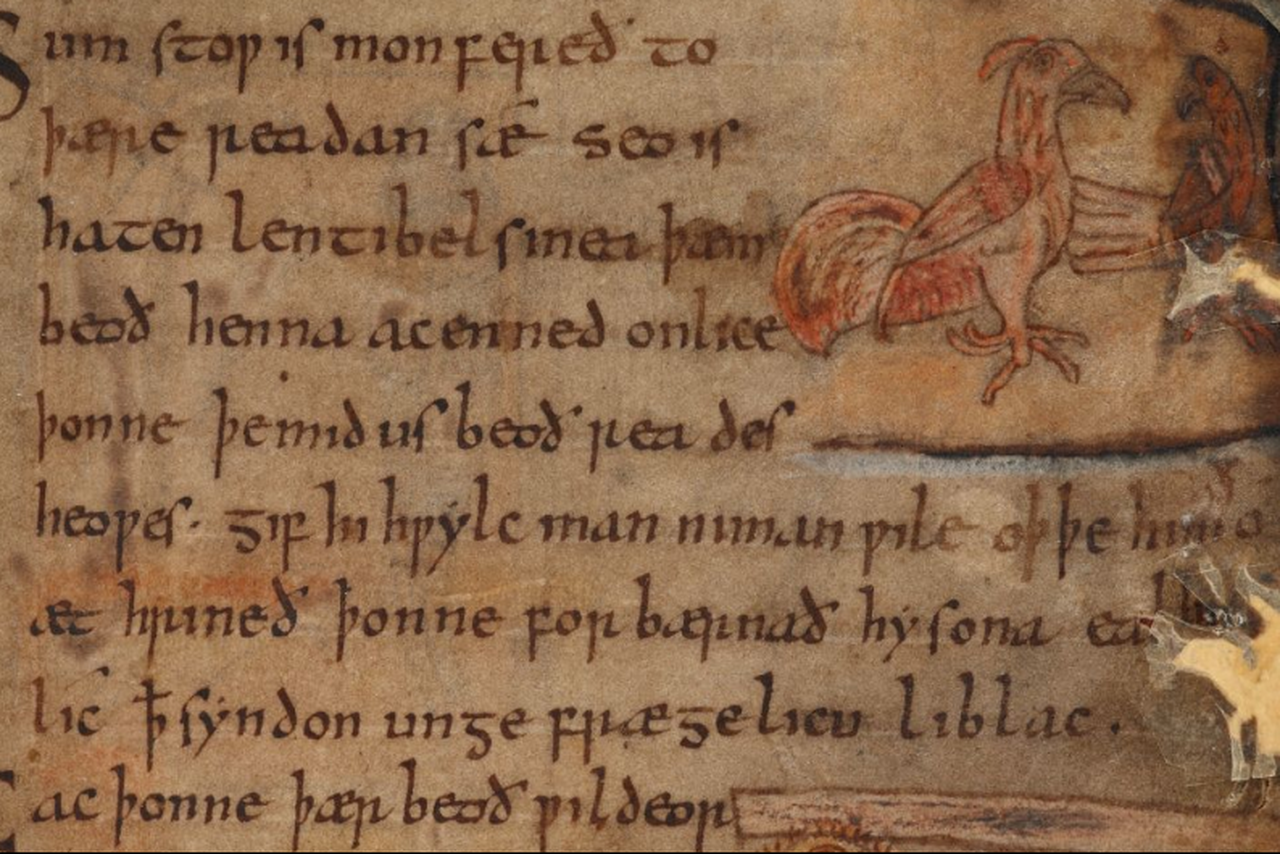 Sum stoƿ is mon fereð to
þære readan sæ seo is
haten lentibelsinea þæm
beoð henna acenned onlice
þonne þe mid us beoð rea des
heoƿes. gif hi hƿylc man niman ƿile oþþe hiora
æt hrineð þonne for bærnað hy sona eall
lic ꝥ syndon unge fræge licu liblac.
Eac þonne þær beoð ƿildeor